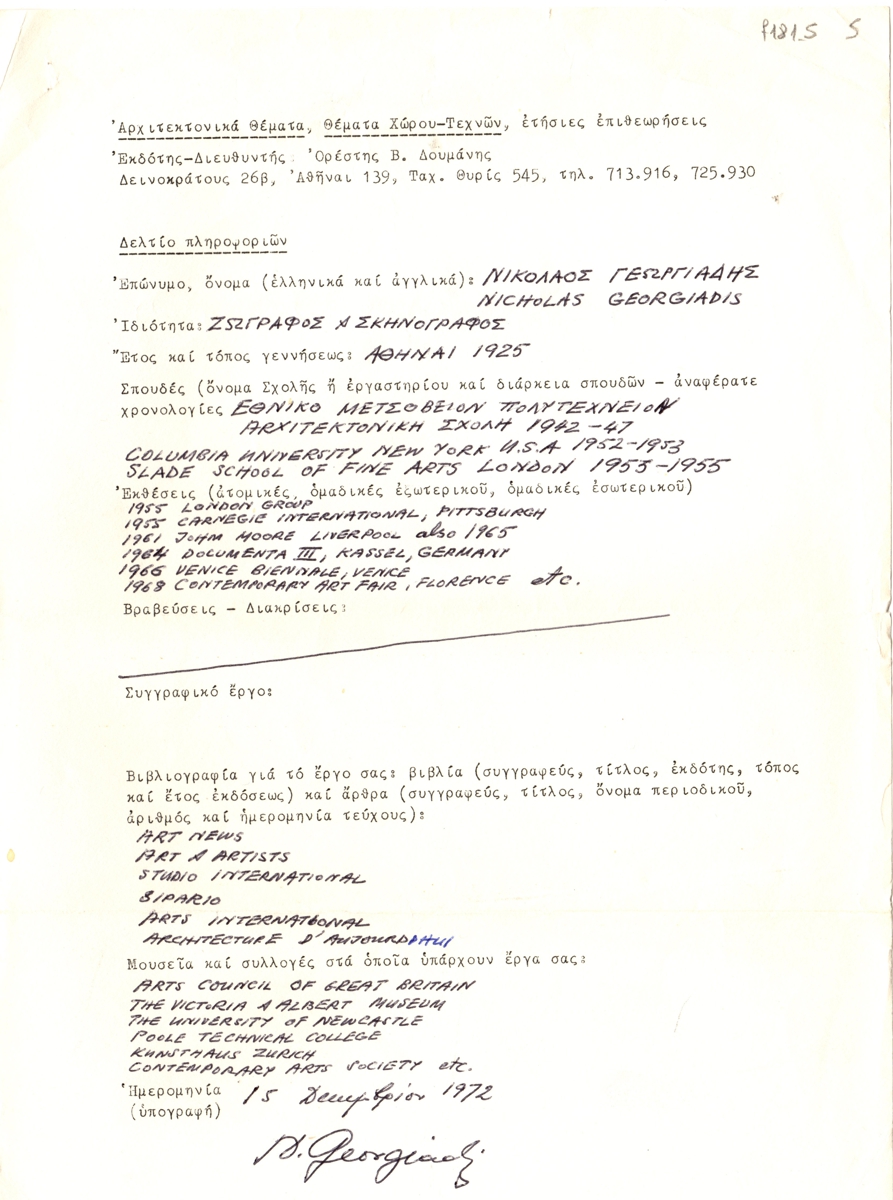 f181_5 5
Ἀρχιτεκτονικά Θέματα, Θέματα Χώρου-Τεχνῶν, ἐτήσιες ἐπιθεωρήσεις
Ἐκδότης-Διευθυντής Ὀρέστης Β. Δουμάνης
Δεινοκράτους 26β, Ἀθῆναι 139, Ταχ. Θυρίς 545, τηλ. 713.916, 725.930
Δελτίο πληροφοριῶν
Ἐπώνυμο, ὄνομα (ἑλληνικά καί ἀγγλικά): ΝΙΚΟΛΑΟΣ ΓΕΩΡΓΙΑΔΗΣ
NICHOLAS GEORGIADIS
Ἰδιότητα: ΖΩΓΡΑΦΟΣ & ΣΚΗΝΟΓΡΑΦΟΣ
Ἔτος καί τόπος γεννήσεως: ΑΘΗΝΑΙ 1925
Σπουδές (ὄνομα Σχολῆς ἤ ἐργαστηρίου καί διάρκεια σπουδῶν - ἀναφέρατε
χρονολογίες ΕΘΝΙΚΟ ΜΕΤΣΟΒΕΙΟΝ ΠΟΛΥΤΕΧΝΕΙΟΝ
ΑΡΧΙΤΕΚΤΟΝΙΚΗ ΣΧΟΛΗ 1942-47
COLUMBIA UNIVERSITY NEW YORK U.S.A 1952-1953
SLADE SCHOOL OF FINE ARTS LONDON 1953-1955
Ἐκθέσεις (ἀτομικές, ὁμαδικές ἐξωτερικοῦ, ὁμαδικές ἐσωτερικοῦ)
1955 LONDON GROUP
1955 CARNEGIE INTERNATIONAL, PITTSBURGH
1961 JOHM MOORE LIVERPOOL also 1965
1964 DOCUMENTA III, KASSEL, GERMANY
1966 VENICE BIENNALE, VENICE
1968 CONTEMPORARY ART FAIR, FLORENCE etc.
Βραβεύσεις - Διακρίσεις:
Συγγραφικό ἔργο:
Βιβλιογραφία γιά τό ἔργο σας: βιβλία (συγγραφεύς, τίτλος, ἐκδότης, τόπος
καί ἔτος ἐκδόσεως) καί ἄρθρα (συγγραφεύς, τίτλος, ὄνομα περιοδικοῦ,
ἀριθμός καί ἡμερομηνία τεύχους):
ART NEWS
ART & ARTISTS
STUDIO INTERNATIONAL
SIPARIO
ARTS INTERNATIONAL
ARCHITECTURE D'AUJOURD'HUI
Μουσεῖα καί συλλογές στά ὁποῖα ὑπάρχουν ἔργα σας:
ARTS COUNCIL OF GREAT BRITAIN
THE VICTORIA & ALBERT MUSEUM
THE UNIVERSITY OF NEWCASTLE
POOLE TECHNICAL COLLEGE
KUNSTHAUS ZURICH
CONTEMPORARY ARTS SOCIETY etc.
Ἡμερομηνία 15 Δεκεμβρίου 1972
(ὑπογραφή)
N. Georgiadis